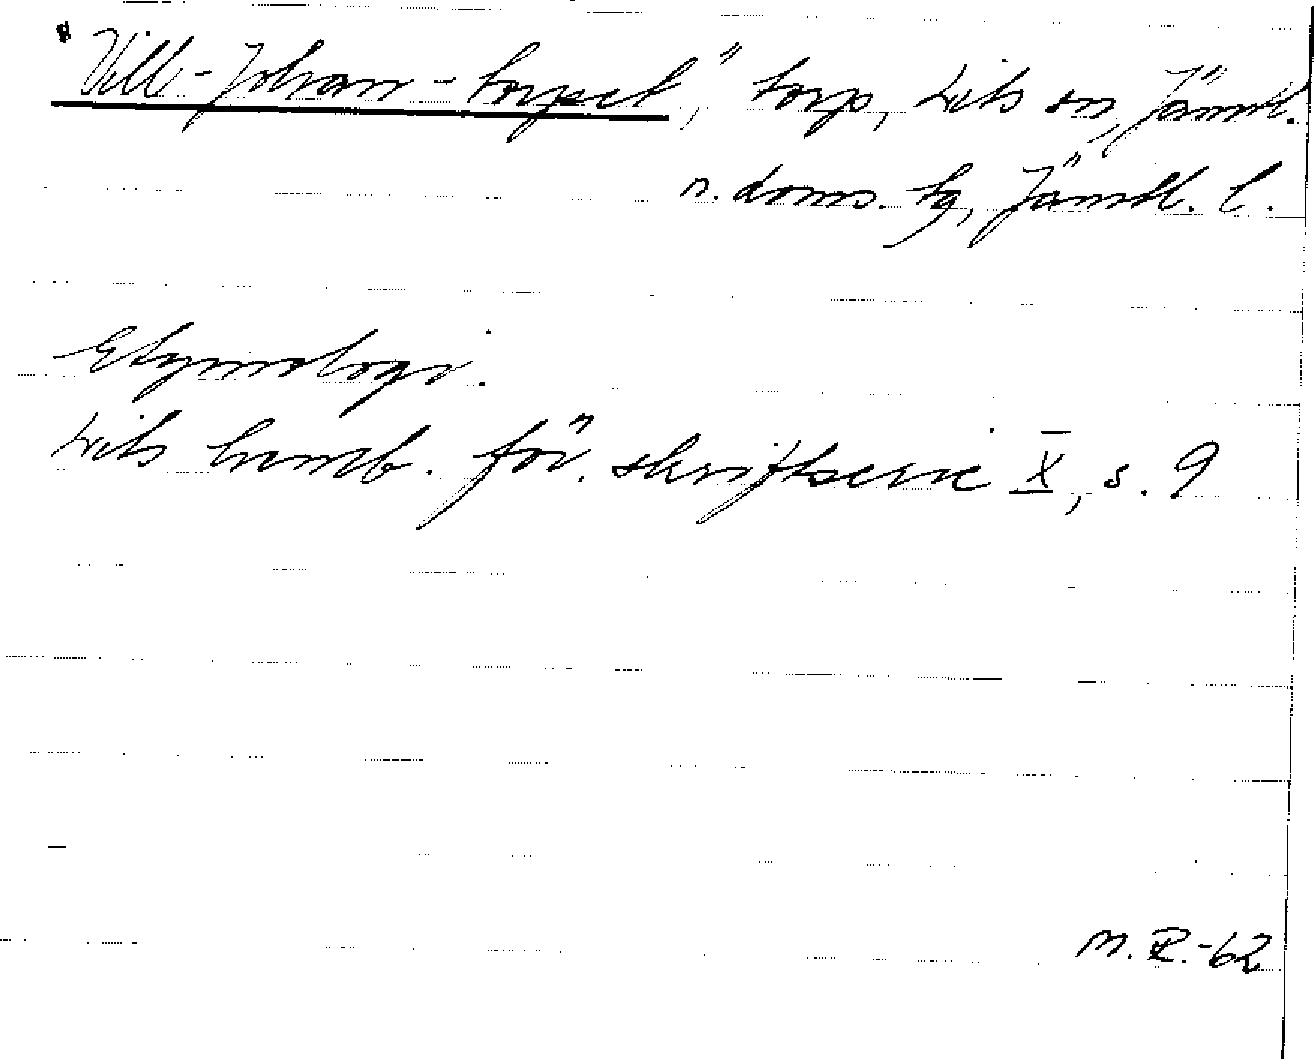 "Vill-Johan-torpet," torp, Lits sn, Jämtl.
n. doms. tg, Jämtl. l.
Etymologi.
Lits hemb. för. skriftserie X, s. 9
M.R.-62